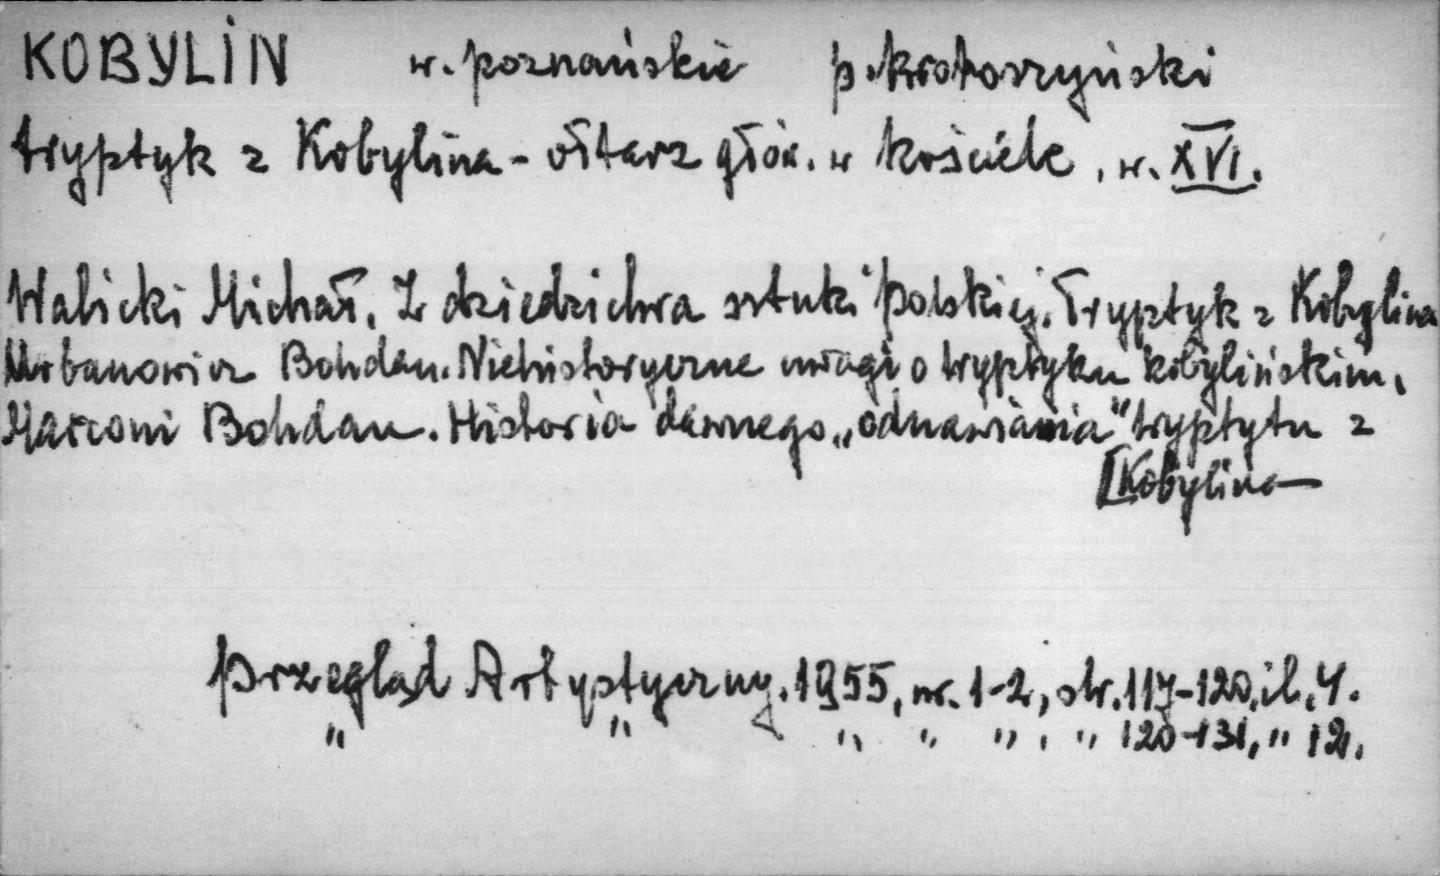 KOBYLIN w. poznańskie p. krotoszyński
tryptyk z Kobylina - ołtarz głów. w kościele, w. XVI.
Walicki Michał, Z dziedzictwa sztuki polskiej. Tryptyk z Kobylina
Urbanowicz Bohdan. Niehistoryczne uwagi o tryptyku kobylińskim,
Marconi Bohdan. Historia dawnego „odnawiania" tryptytu z
[Kobylina
Przegląd Artystyczny. 1955, nr. 1-2, str. 117-120, il. 4.
" " " " " , " 120-131, " 12.